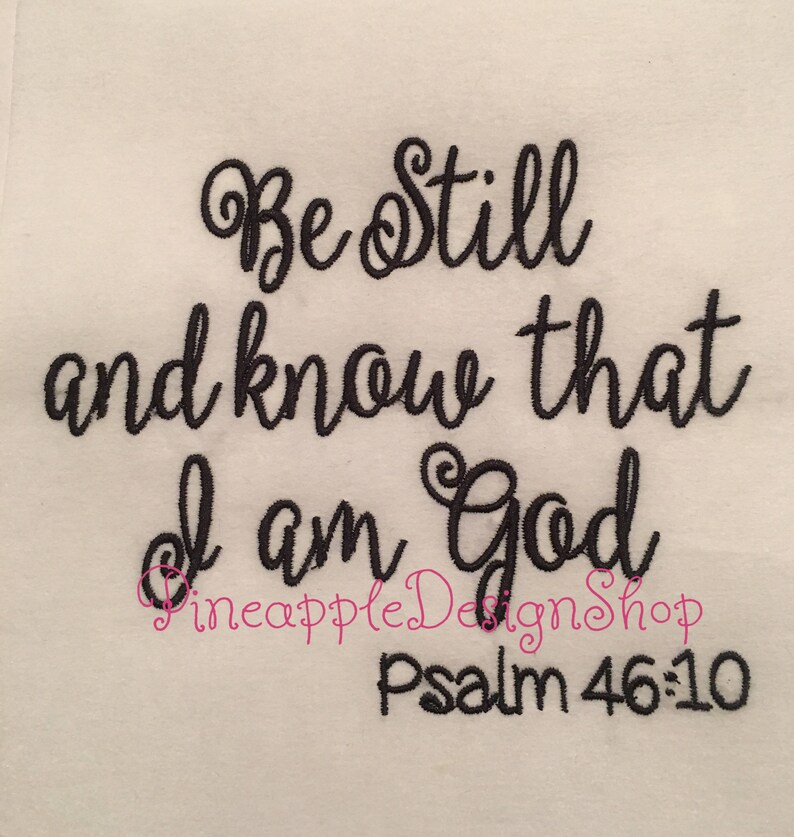 Be Still
and know that
I am God
PineappleDesignShop
Psalm 46:10